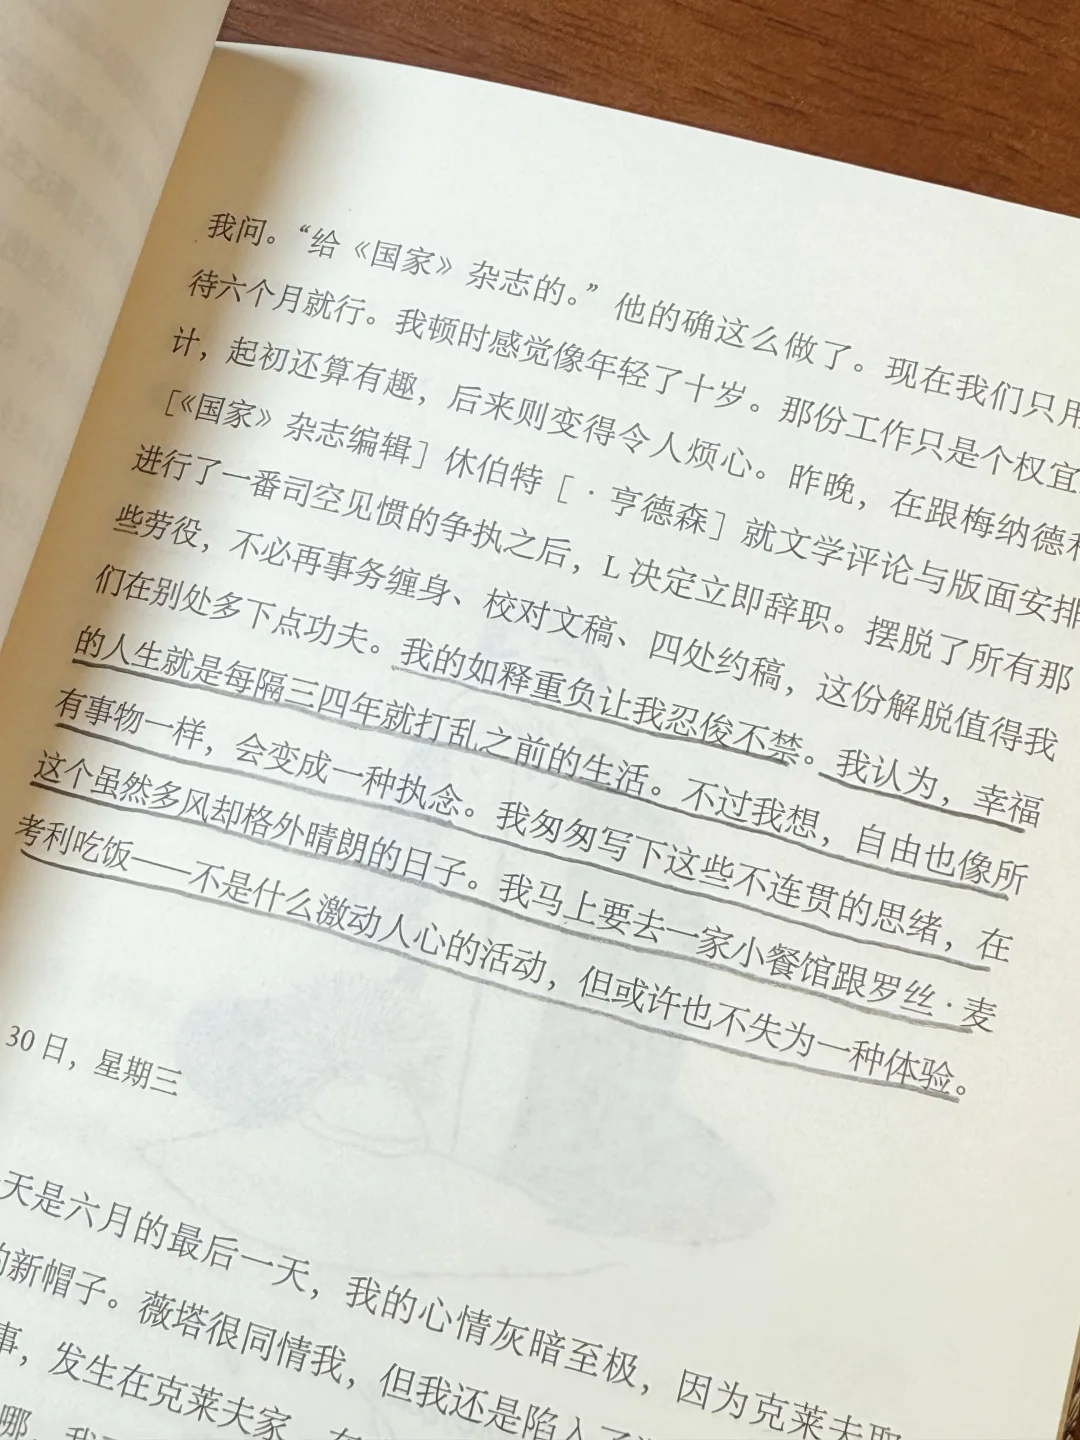 我问。“给《国家》杂志的。”他的确这么做了。现在我们只用
待六个月就行。我顿时感觉像年轻了十岁。那份工作只是个权宜
计，起初还算有趣，后来则变得令人烦心。昨晚，在跟梅纳德和
［《国家》杂志编辑］休伯特［·亨德森］就文学评论与版面安排
进行了一番司空见惯的争执之后，L决定立即辞职。摆脱了所有那
些劳役，不必再事务缠身、校对文稿、四处约稿，这份解脱值得我
们在别处多下点功夫。我的如释重负让我忍俊不禁。我认为，幸福
的人生就是每隔三四年就打乱之前的生活。不过我想，自由也像所
有事物一样，会变成一种执念。我匆匆写下这些不连贯的思绪，在
这个虽然多风却格外晴朗的日子。我马上要去一家小餐馆跟罗丝·麦
考利吃饭——不是什么激动人心的活动，但或许也不失为一种体验。
30日，星期三
天是六月的最后一天，我的心情灰暗至极，因为克莱夫取
的新帽子。薇塔很同情我，但我还是陷入了
事，发生在克莱夫家
哪